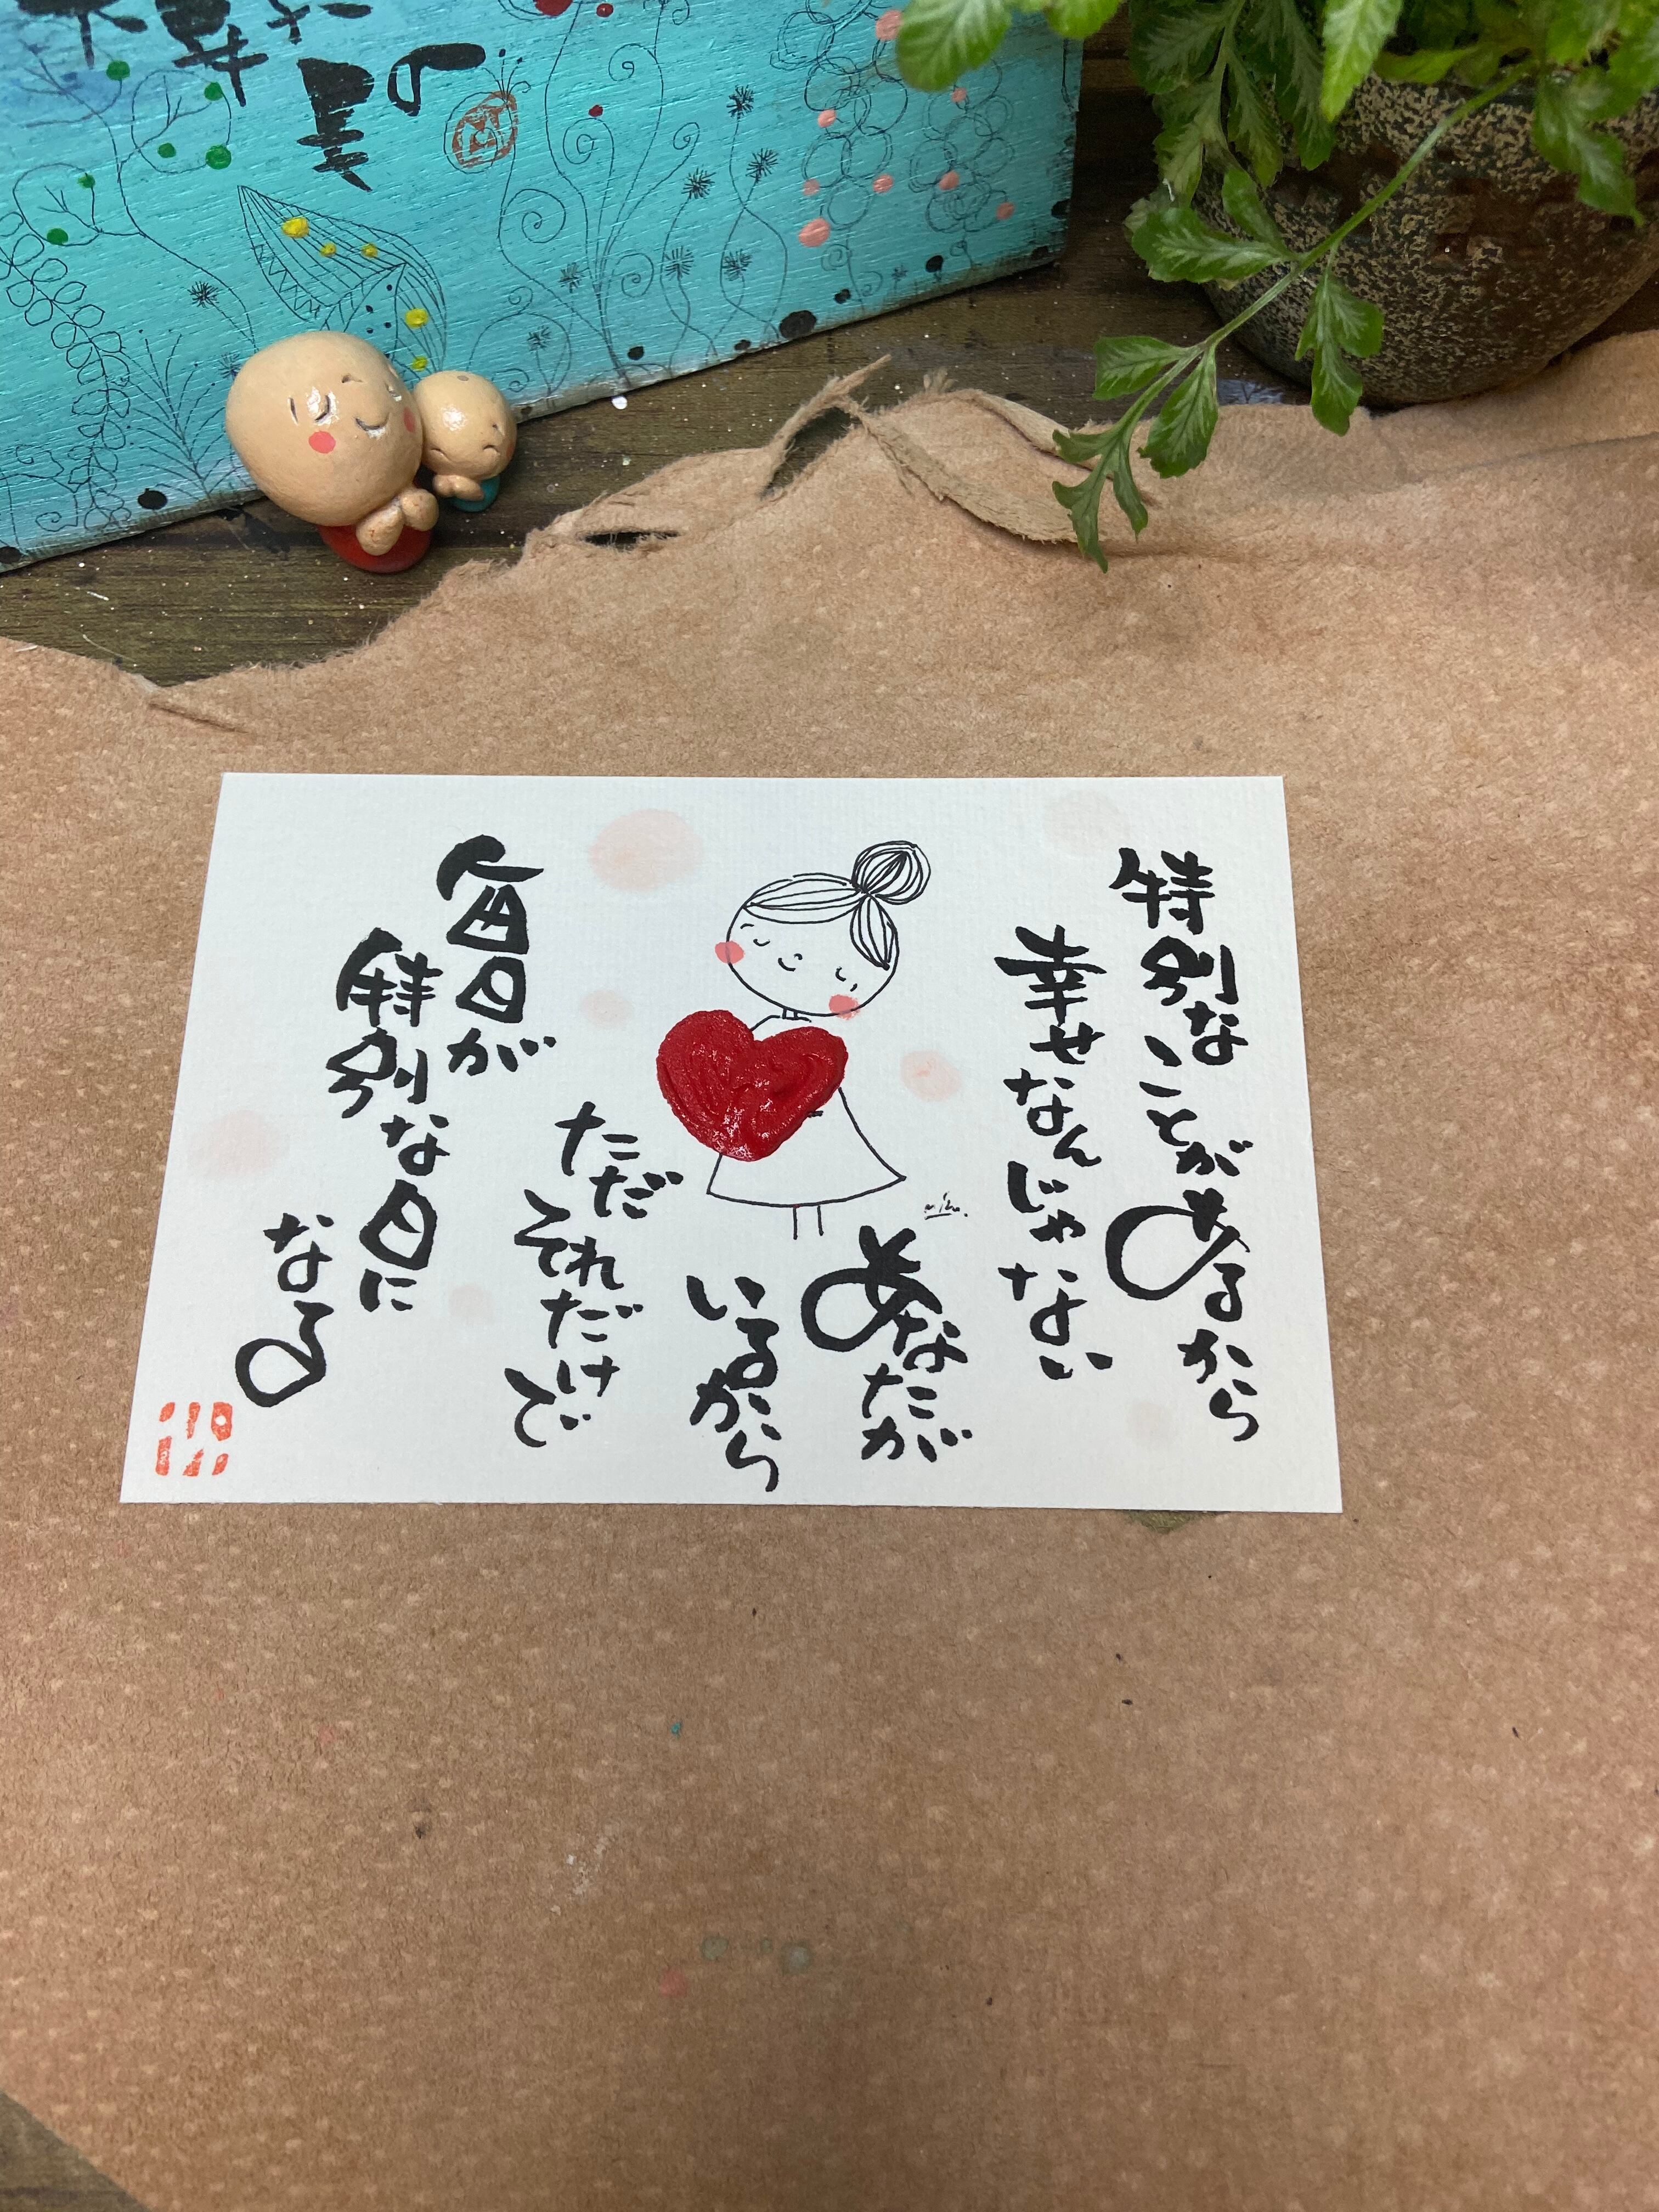 特別なことがあるから
幸せなんじゃない
あなたが
いるから
ただ
それだけで
毎日が
特別な日に
なる
miho.